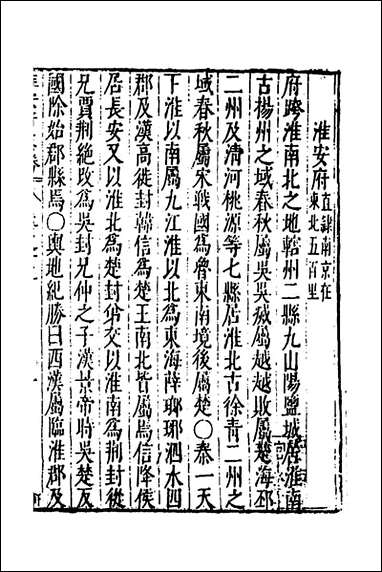 淮安府
直隸南京在
東北五百里
府跨淮南北之地轄州二縣九山陽鹽城居淮南
古楊州之域春秋屬吳吳滅屬越越敗屬楚海邳
二州及清河桃源等七縣居淮北古徐青二州之
域春秋屬宋戰國爲魯東南境後屬楚○秦一天
下淮以南屬九江淮以北爲東海薛瑯琊泗水四
郡及漢高徙封韓信爲楚王南北皆屬焉信降侯
居長安又以淮北爲楚封交以淮南爲荆封從
兄賈荆絶改爲吳封兄仲之子漢景帝時吳楚反
國除始郡縣焉○輿地紀勝曰西漢屬臨淮郡及